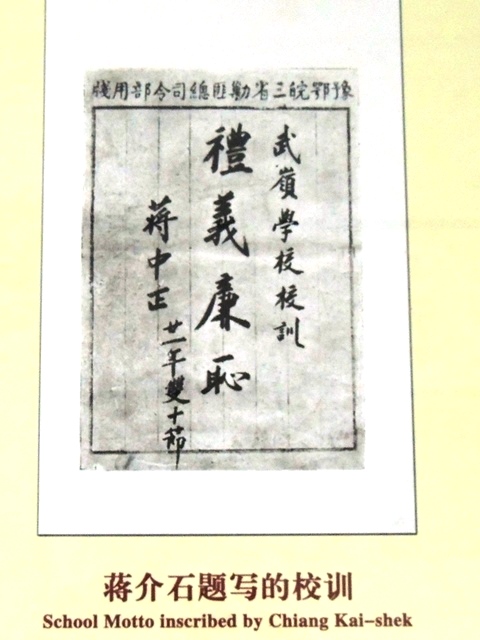 豫鄂皖三省勦匪總司令部用牋
武嶺學校校訓
禮義廉恥
蔣中正
廿一年雙十節
蒋介石题写的校训
School Motto inscribed by Chiang Kai-shek